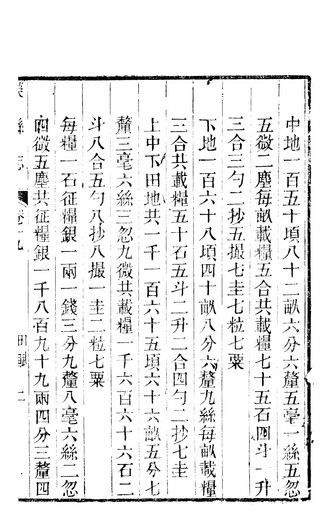 中地一百五十頃八十二畝六分六釐五毫一絲五忽
五微二塵每畝載糧五合共載糧七十五石四斗一升
三合三勺二抄五撮七圭七粒七粟
下地一百六十八頃四十畝八分六釐九絲每畝載糧
三合共載糧五十石五斗二升二合四勺二抄七圭
上中下田地共一千一百六十五頃六十六畝五分七
釐三毫六絲三忽九微共載糧一千六百六十六石二
斗八合五勺八抄八撮一圭二粒七粟
每糧一石征糧銀一兩一錢三分九釐八毫六絲二忽
四微五塵共征糧銀一千八百九十九兩四分三釐四
縣志 卷十九 田賦 二